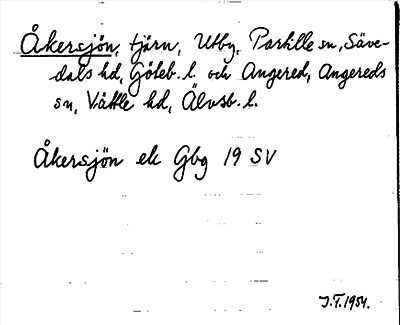 Åkersjön, tjärn, Utby, Partille sn, Säve-
dals hd, Göteb. l. och Angered, Angereds
sn, Vättle hd, Älvsb. l.
Åkersjön ek Gbg 19 SV
J.T. 1954.